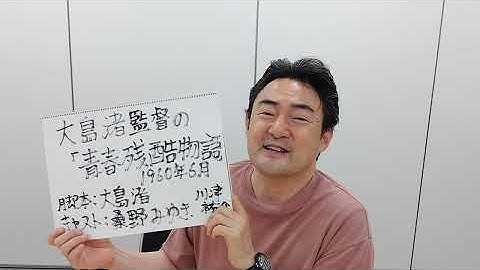 大島渚監督の
「青春残酷物語」
1960年6月
脚本:大島渚
キャスト:桑野みゆき 川津祐介